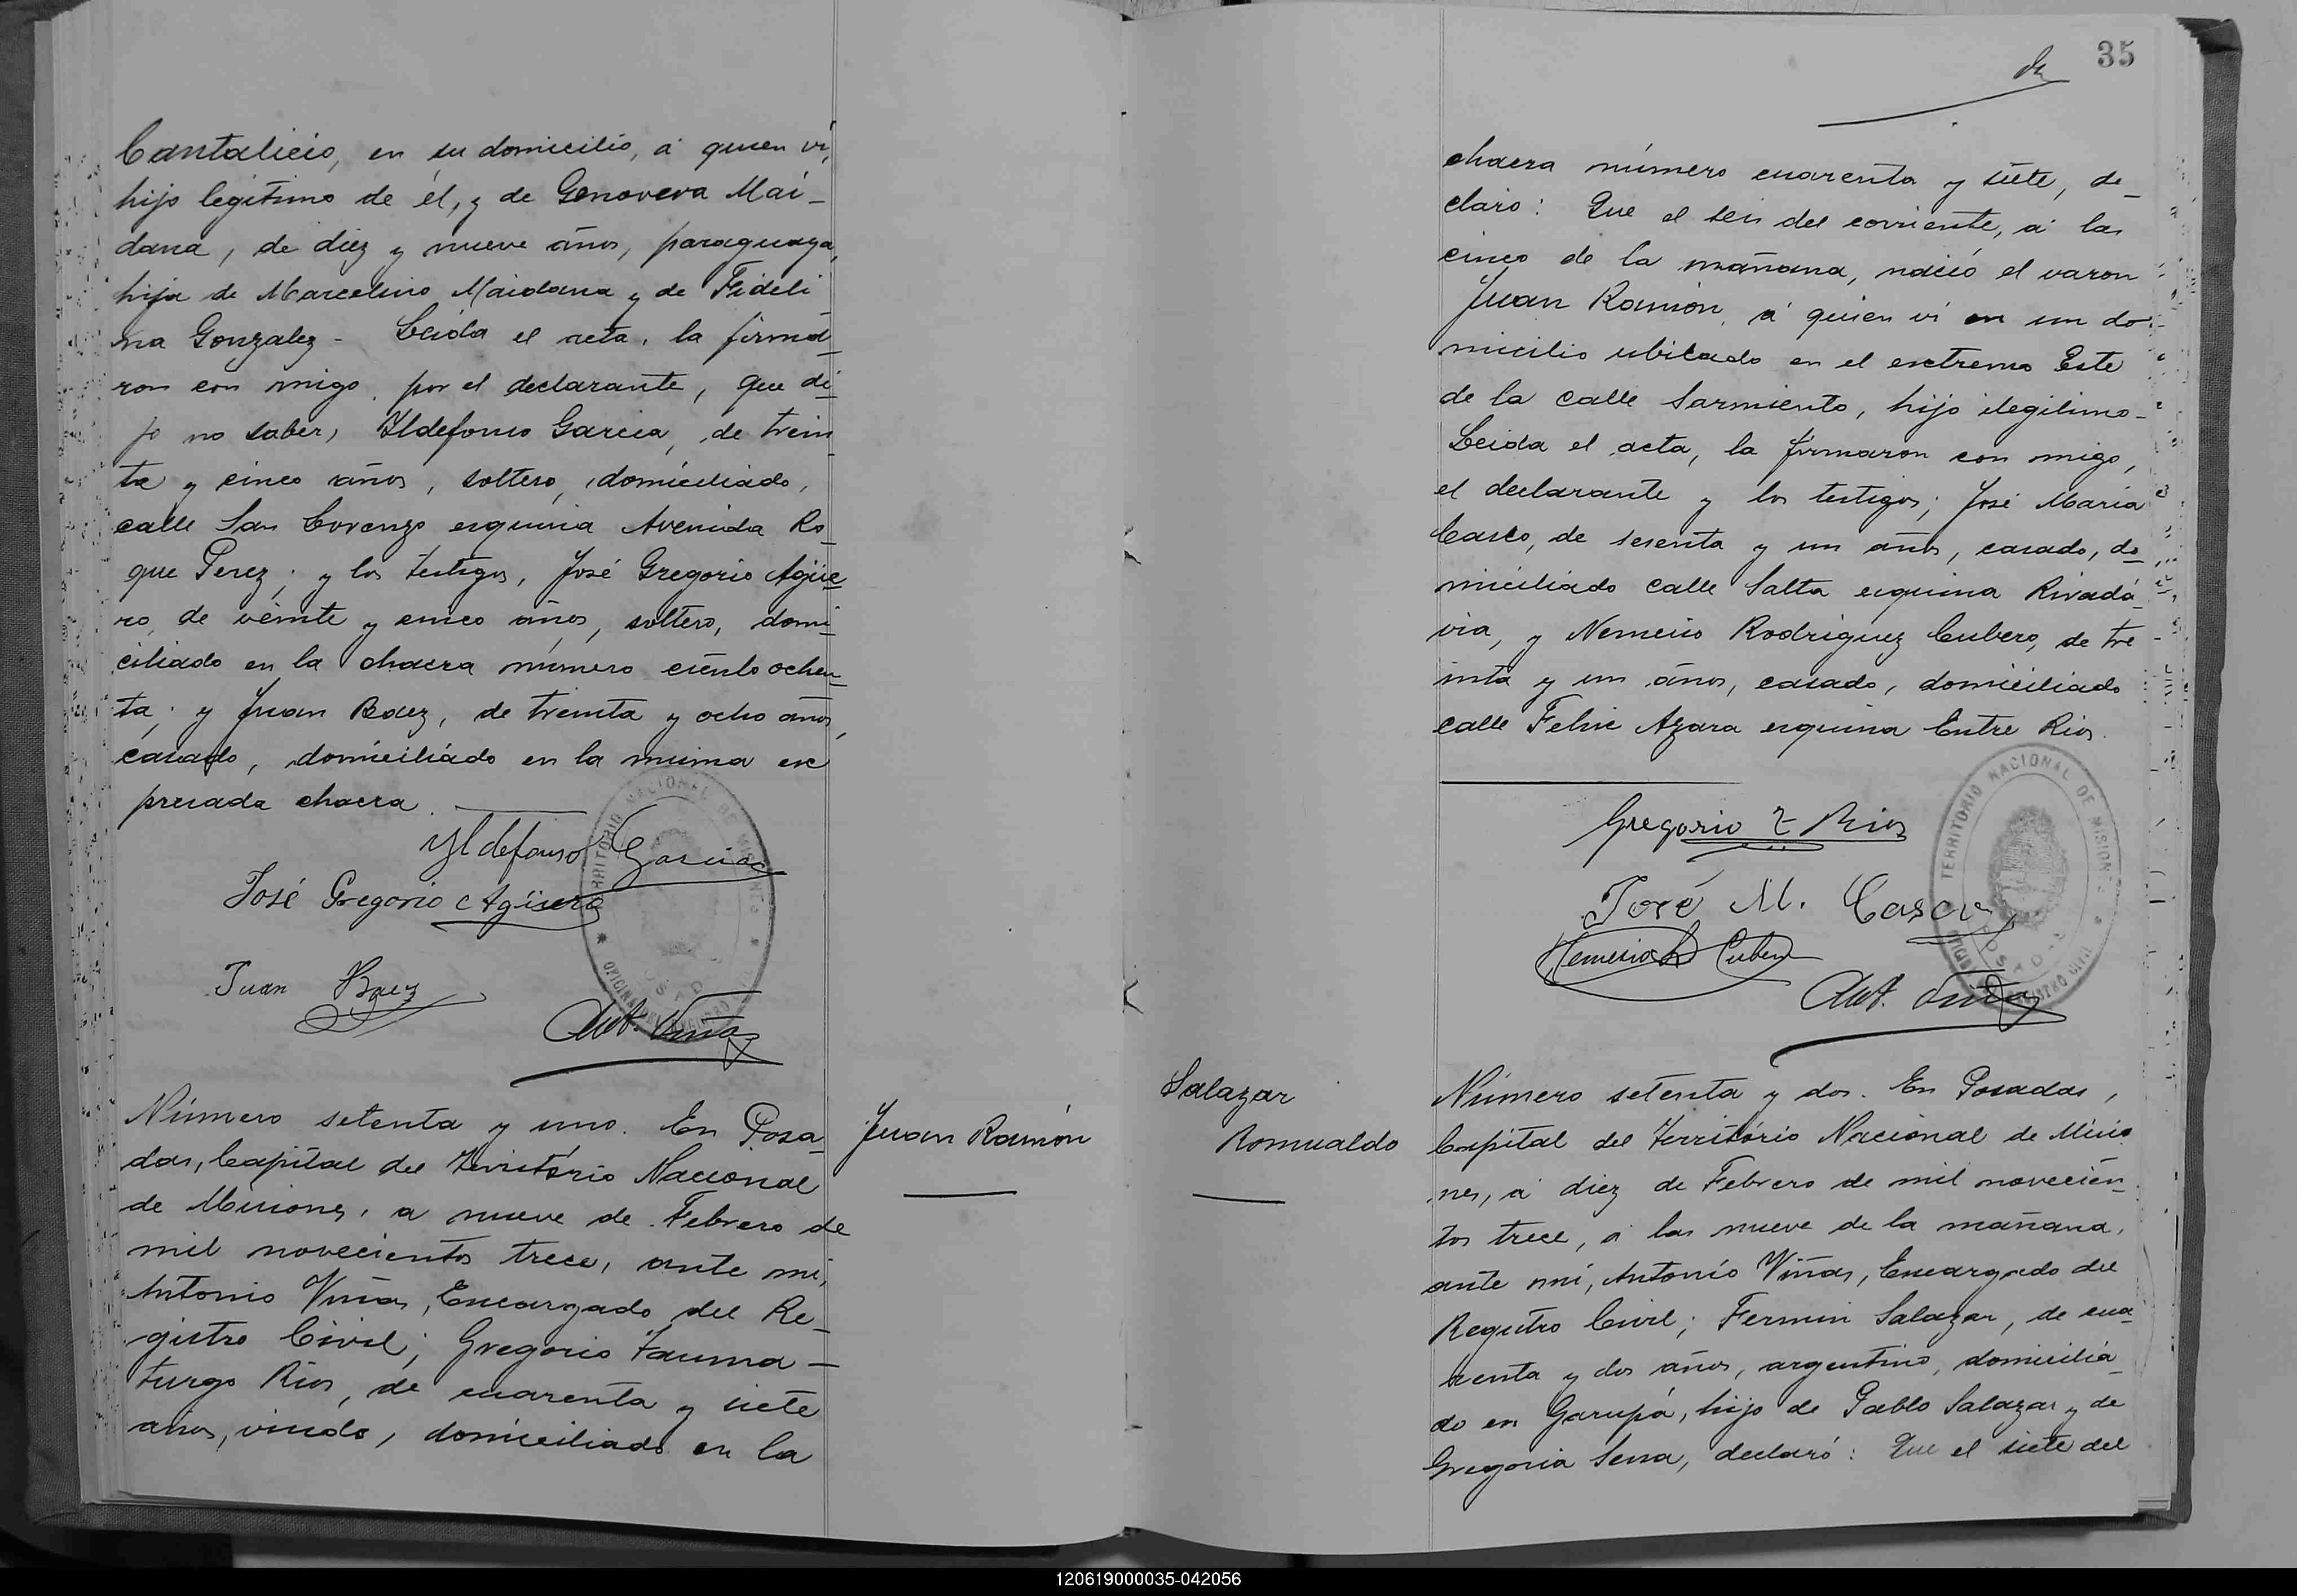 Cantalicio, en su domicilio, á quien ví,
hijo legítimo de él, y de Genoveva Mai-
dana, de diez y nueve años, paraguaya,
hija de Marcelino Maidana y de Fideli
na Gonzalez - Leida el acta, la firma-
ron con migo, por el declarante, que di-
jo no saber, Ildefonso Garcia, de trein
ta y cinco años, soltero, domiciliado,
calle San Lorenzo esquina Avenida Ro-
que Perez; y los testigos, José Gregorio Agüe-
ro, de veinte y cinco años, soltero, domi-
ciliado en la chacra número ciento ochen-
ta; y Juan Baez, de treinta y ocho años,
casado, domiciliado en la misma ex
presada chacra.
Yldefonso Garcia
José Gregorio Agüero
Juan Baez
Ant. Viñas
TERRITORIO NACIONAL DE MISIONES
OFICINA DEL REGISTRO CIVIL
POSADAS
Número setenta y uno. En Posa-
das, Capital del Território Nacional
de Misiones, a nueve de Febrero de
mil novecientos trece, ante mí,
Antonio Viñas, Encargado del Re-
gistro Civil; Gregorio Tauma-
turgo Rios, de cuarenta y siete
años, viudo, domiciliado en la
Juan Ramón
35
chacra número cuarenta y siete, de-
claro: Que el seis del corriente, á las
cinco de la mañana, nació el varon
Juan Ramón, á quien ví en un do-
micilio ubicado en el extremo Este
de la calle Sarmiento, hijo ilegitimo-
Leida el acta, la firmaron con migo,
el declarante y los testigos; José María
Casco, de sesenta y un años, casado, do-
miciliado calle Salta esquina Rivadá-
via, y Nemesio Rodriguez Cubero, de tre
inta y un años, casado, domiciliado
calle Felix Azara esquina Entre Rios.
Gregorio T Rios
José M. Casco
Nemesio R Cubero
Ant. Viñas
TERRITORIO NACIONAL DE MISIONES
OFICINA DEL REGISTRO CIVIL
POSADAS
Salazar
Romualdo
Número setenta y dos. En Posadas,
Capital del Território Nacional de Misio
nes, á diez de Febrero de mil novecien-
tos trece, á las nueve de la mañana,
ante mí, Antonio Viñas, Encargado del
Registro Civil; Fermin Salazar, de cua-
renta y dos años, argentino, domicilia-
do en Garupá, hijo de Pablo Salazar y de
Gregoria Sena, declaró: Que el siete del
120619000035-042056